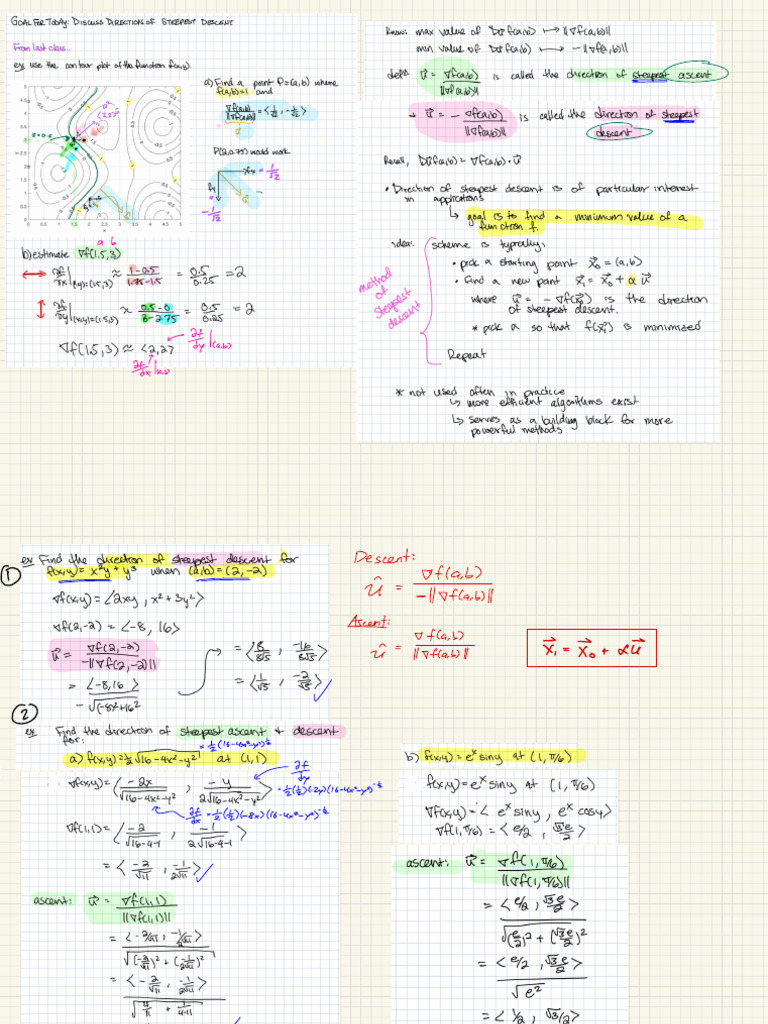 GOAL FOR TODAY: DISCUSS DIRECTION OF STEEPEST DESCENT
From last class...
ex/ use the contour plot of the function f(x,y).
a) Find a point P=(a,b) where
f(a,b)=1 and
∇f(a,b)/||∇f(a,b)|| = <1/√2, -1/√2>
P(2,0.75) would work
b) estimate ∇f(1.5,3)
a b
∂f/∂x |(x,y)=(1.5,3) ≈ (1-0.5)/(1.75-1.5) = 0.5/0.25 = 2
∂f/∂y |(x,y)=(1.5,3) ≈ (0.5-0)/(3-2.75) = 0.5/0.25 = 2
∇f(1.5,3) ≈ <2,2>
∂f/∂y |(a,b)
∂f/∂x |(a,b)
Know: max value of Dûf(a,b) ↦ ||∇f(a,b)||
min value of Dûf(a,b) ↦ -||∇f(a,b)||
defn: û = ∇f(a,b)/||∇f(a,b)|| is called the direction of steepest ascent
→ û = - ∇f(a,b)/||∇f(a,b)|| is called the direction of steepest
descent
Recall, Dûf(a,b) = ∇f(a,b)·û
• Direction of steepest descent is of particular interest
in applications
↳ goal is to find a minimum value of a
function f.
idea: scheme is typically:
• pick a starting point x⃗₀ = (a,b)
• find a new point x⃗₁ = x⃗₀ + α u⃗
where u⃗ = -∇f(x⃗₀) is the direction
of steepest descent.
* pick α so that f(x⃗₁) is minimized
Repeat
method of steepest descent
* not used often in practice
↳ more efficient algorithms exist
↳ serves as a building block for more
powerful methods
① ex Find the direction of steepest descent for
f(x,y) = x²y + y³ when (a,b) = (2,-2)
∇f(x,y) = <2xy, x²+3y²>
∇f(2,-2) = <-8, 16>
u⃗ = ∇f(2,-2)/-||∇f(2,-2)||
= <-8,16>/-√((-8)²+16²
= <8/8√5, -16/8√5>
= <1/√5, -2/√5> ✓
Descent:
û = ∇f(a,b)/-||∇f(a,b)||
Ascent:
û = ∇f(a,b)/||∇f(a,b)||
x⃗₁ = x⃗₀ + αu⃗
② ex Find the direction of steepest ascent & descent
for:
= ½(16-4x²-y²)^½
a) f(x,y) = ½√(16-4x²-y²) at (1,1)
∇f(x,y) = <-2x/√(16-4x²-y²), -y/2√(16-4x²-y²)>
∂f/∂y = ½(½)(-2y)(16-4x²-y²)^-½
∂f/∂x = ½(½)(-8x)(16-4x²-y²)^-½
∇f(1,1) = <-2/√(16-4-1), -1/2√(16-4-1)>
= <-2/√11, -1/2√11> ✓
ascent: u⃗ = ∇f(1,1)/||∇f(1,1)||
= <-2/√11, -1/2√11>/√((-2/√11)²+(-1/2√11)²
= <-2/√11, -1/2√11>/√(4/11 + 1/4·11)
b) f(x,y) = eˣ siny at (1, π/6)
f(x,y) = eˣ siny at (1, π/6)
∇f(x,y) = <eˣ siny, eˣ cosy>
∇f(1,π/6) = <e/2, √3e/2>
ascent: u⃗ = ∇f(1,π/6)/||∇f(1,π/6)||
= <e/2, √3e/2>/√((e/2)²+(√3e/2)²
= <e/2, √3e/2>/√e²
= <1/2, √3/2>